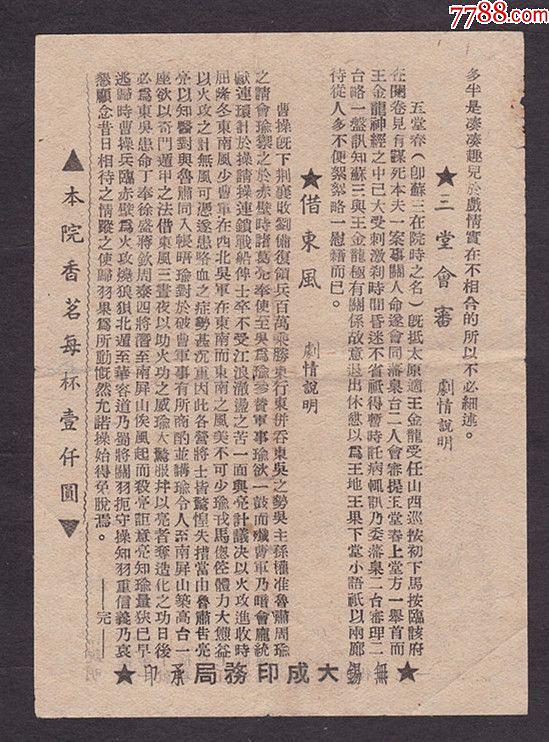 7788.com
多半是凑凑趣兒於戲情實在不相合的所以不必細述。
★三堂會審 劇情說明
玉堂春(卽蘇三在院時之名)旣抵太原適王金龍受任山西巡按初下馬按臨該府
在閱卷見有謀死本夫一案事關人命遂會同藩臬台二人會審提玉堂春上堂方一舉首而
王金龍神經之中已大受刺激刹時間昏迷不省祇得暫時託病輒訊乃委藩臬二台審理二
台略一盤訊知蘇三與王金龍極有關係故意退出休憩以爲王地王果下堂小語祇以兩廊
侍從人多不便絮絮略一慰藉而已。
★借東風 劇情說明
曹操旣下荆襄收劉備復領兵百萬乘勝東行東併吞東吳之勢吳主孫權准魯肅周瑜
之請會瑜禦之於赤壁時諸葛亮奉使至吳爲瑜參贊軍事瑜欲一鼓而殲曹軍乃暗會龐統
獻連環計於操請操連鎖戰船俾士卒不受江浪激盪之苦一面與亮計議决以火攻進收時
屆隆冬東南風少曹軍在西北吳軍在東南而東南之風美不可少瑜
以火攻之計無風可憑遂患咯血之症勢甚沉重因此各營將士皆驚惶失措當由魯肅告亮
亮以知醫對與魯肅同入帳晤瑜對於破曹軍事有所商酌並講瑜令人至南屏山築高台一
座欲以奇門遁甲之法借東風三晝夜以助火功之威瑜大驚服幷以亮者奪造化之功日後
必爲東吳患命丁奉徐盛蔣欽周泰四將潛至南屏山俟風起而殺亮詎意亮知瑜量狹已早
逃歸時曹操兵臨赤壁爲火攻燒狼狽北遁至華容道乃蜀將關羽扼守操知羽重信義乃哀
懇顧念昔日相待之情蹤之使歸羽果爲所動慨然允諾操始得免脫焉。 ——完——
▲本院香茗每杯壹仟圓▼
★印承局務印成大錫無★